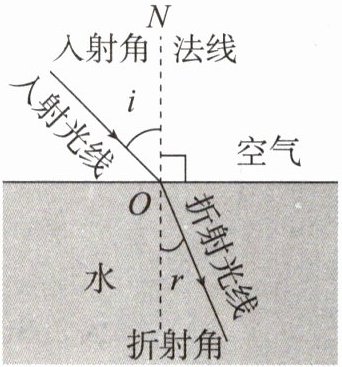 N
入射角 法线
入射光线
i
空气
O
折射光线
水
r
折射角